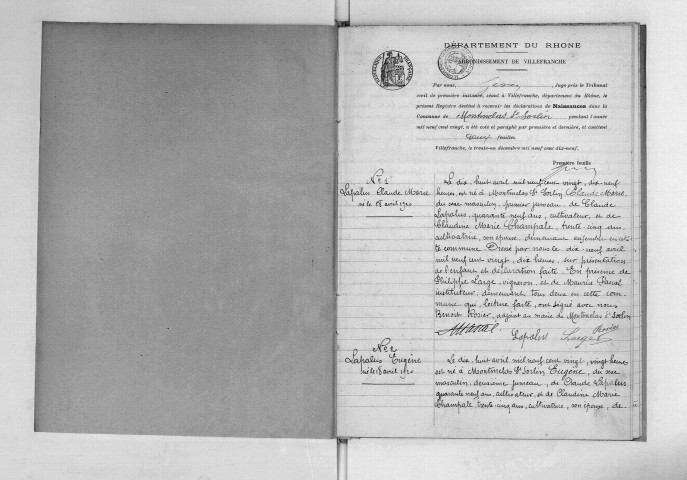 DÉPARTEMENT DU RHONE
ARRONDISSEMENT DE VILLEFRANCHE
Par nous, Juge près le Tribunal
civil de première instance, séant à Villefranche, département du Rhône, le
présent Registre destiné à recevoir les déclarations de Naissances dans la
Commune de Montmelas St Sorlin pendant l'année
mil neuf cent vingt, a été coté et paraphé par première et dernière, et contient
feuilles.
Villefranche, le trente-un décembre mil neuf cent dix-neuf.
Première feuille
No 1
Lapalus Claude Marie
né le 18 avril 1920
Le dix-huit avril mil neuf cent vingt, dix-neuf
heures est né à Montmelas St Sorlin Claude Marie,
du sexe masculin, premier jumeau, de Claude
Lapalus, quarante neuf ans, cultivateur, et de
Claudine Marie Champale, trente-cinq ans,
cultivatrice, son épouse, demeurant ensemble en cet-
te commune. Dressé par nous le dix-neuf avril
mil neuf cent vingt, dix heures, sur présentation
de l'enfant et déclaration faite. En présence de
Philippe Large, vigneron, et de Maurice Pascal
instituteur, demeurant tous deux en cette com-
mune qui, lecture faite, ont signé avec nous
Benoit Rosier, adjoint au maire de Montmelas St Sorlin
Lapalus Large Rosier
No 2
Lapalus Eugène
né le 18 avril 1920
Le dix-huit avril mil neuf cent vingt, vingt heures
est né à Montmelas St Sorlin Eugène, du sexe
masculin, deuxième jumeau, de Claude Lapalus
quarante neuf ans, cultivateur, et de Claudine Marie
Champale, trente-cinq ans, cultivatrice, son épouse, de-